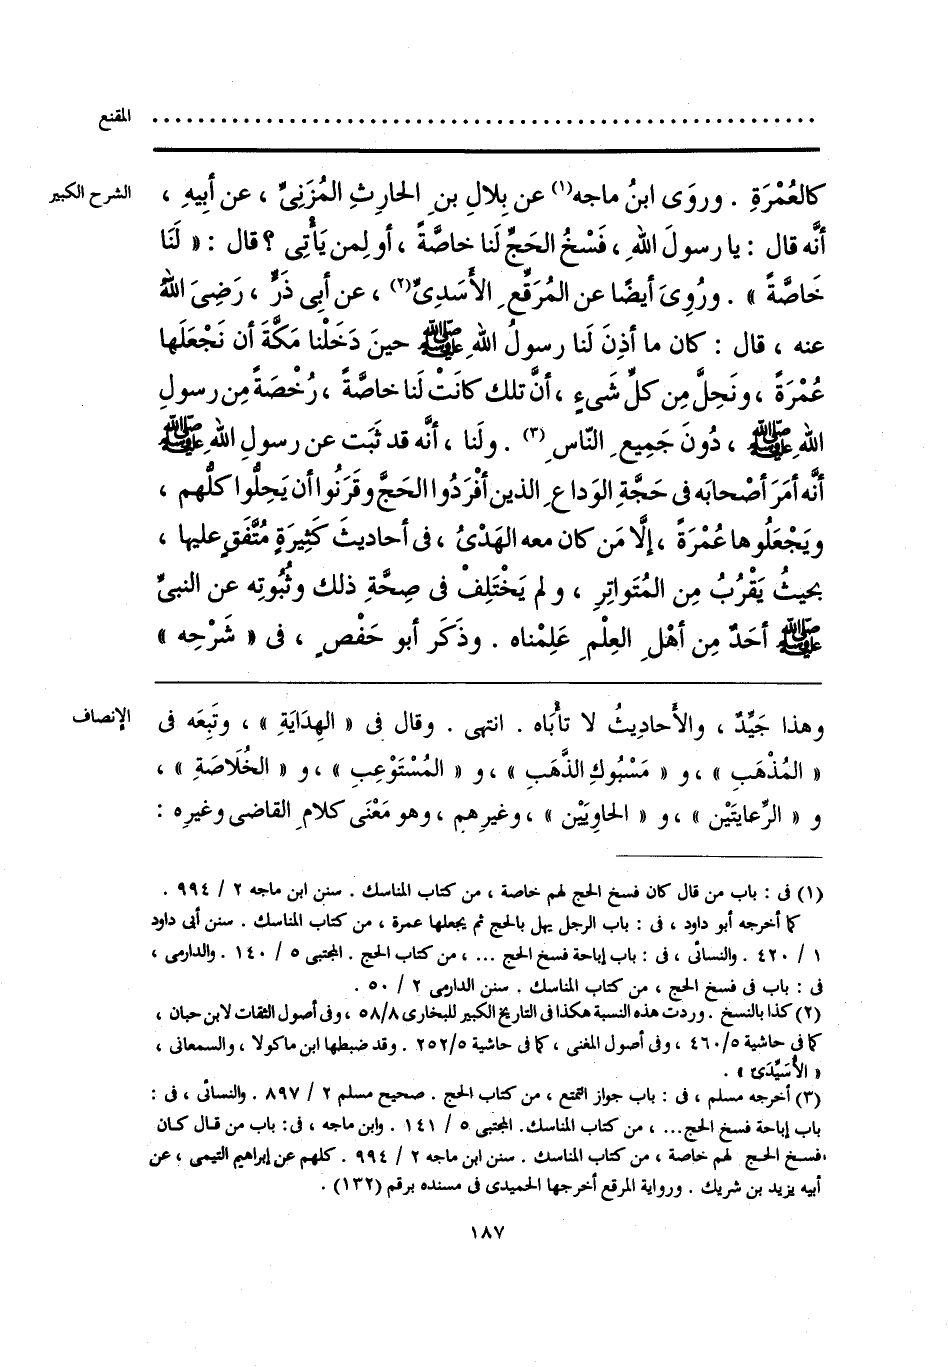 المقنع ........................................................
الشرح الكبير كالعُمْرَةِ . وروَى ابنُ ماجه(١) عن بِلالِ بنِ الحارِثِ المُزَنِىِّ ، عن أبيهِ ،
أنَّه قال : يا رسولَ اللهِ ، فَسْخُ الحَجِّ لَنا خاصَّةً ، أو لِمن يَأْتِى ؟ قال : « لَنَا
خَاصَّةً » . ورُوِىَ أيضًا عن المُرَقِّعِ الأَسَدِىِّ(٢) ، عن أبى ذَرٍّ ، رَضِىَ اللهُ
عنه ، قال : كان ما أذِنَ لَنا رسولُ اللهِ ﷺ حينَ دَخَلْنا مَكَّةَ أن نَجْعَلَها
عُمْرَةً ، ونَحِلَّ مِن كلِّ شَىءٍ ، أنَّ تلك كانَتْ لَنا خاصَّةً ، رُخْصَةً مِن رسولِ
اللهِ ﷺ ، دُونَ جَمِيعِ النّاسِ(٣) . ولَنا ، أنَّه قد ثَبَت عن رسولِ اللهِ ﷺ
أنَّه أمَرَ أصْحابَه فى حَجَّةِ الوَداعِ الذين أفْرَدُوا الحَجَّ وقَرَنُوا أن يَحِلُّوا كلُّهم ،
ويَجْعَلُوها عُمْرَةً ، إلَّا مَن كان معه الهَدْىُ ، فى أحاديثَ كَثِيرَةٍ مُتَّفَقٍ عليها ،
بحيثُ يَقْرُبُ مِن المُتَواتِرِ ، ولم يَخْتَلِفْ فى صِحَّةِ ذلك وثُبُوتِه عن النبىِّ
ﷺ أحَدٌ مِن أهْلِ العِلْمِ عَلِمْناه . وذَكَر أبو حَفْصٍ ، فى « شَرْحِه »
الإنصاف وهذا جَيِّدٌ ، والأَحاديثُ لا تأْبَاه . انتهى . وقال فى « الهِدَايَةِ » ، وتَبِعَه فى
« المُذْهَبِ » ، و « مَسْبُوكِ الذَّهَبِ » ، و « المُسْتَوْعِبِ » ، و « الخُلَاصَةِ » ،
و « الرِّعايتَيْن » ، و « الحاوِيَيْن » ، وغيرِهم ، وهو مَعْنَى كلامِ القاضى وغيرِه :
(١) فى : باب من قال كان فسخ الحج لهم خاصة ، من كتاب المناسك . سنن ابن ماجه ٢ / ٩٩٤ .
كما أخرجه أبو داود ، فى : باب الرجل يهل بالحج ثم يجعلها عمرة ، من كتاب المناسك . سنن أبى داود
١ / ٤٢٠ . والنسائى ، فى : باب إباحة فسخ الحج ... ، من كتاب الحج . المجتبى ٥ / ١٤٠ . والدارمى ،
فى : باب فى فسخ الحج ، من كتاب المناسك . سنن الدارمى ٢ / ٥٠ .
(٢) كذا بالنسخ . وردت هذه النسبة هكذا فى التاريخ الكبير للبخارى ٥٨/٨ ، وفى أصول الثقات لابن حبان ،
كما فى حاشية ٤٦٠/٥ ، وفى أصول المغنى ، كما فى حاشية ٢٥٢/٥ . وقد ضبطها ابن ماكولا ، والسمعانى ،
« الأُسَيِّدَىّ » .
(٣) أخرجه مسلم ، فى : باب جواز التمتع ، من كتاب الحج . صحيح مسلم ٢ / ٨٩٧ . والنسائى ، فى :
باب إباحة فسخ الحج... ، من كتاب المناسك. المجتبى ٥ / ١٤١ . وابن ماجه ، فى: باب من قال كان
فسخ الحج لهم خاصة ، من كتاب المناسك . سنن ابن ماجه ٢ / ٩٩٤ . كلهم عن إبراهيم التيمى ، عن
أبيه يزيد بن شريك . ورواية المرقع أخرجها الحميدى فى مسنده برقم (١٣٢) .
١٨٧